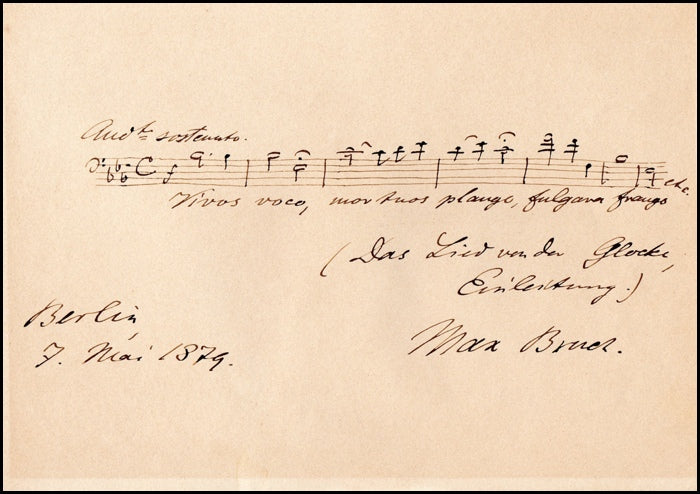 Andte sostenuto.
f
Vivos voco, mortuos plango, fulgura frango etc.
(Das Lied von der Glocke,
Einleitung.)
Berlin,
7. Mai 1879.
Max Bruch.